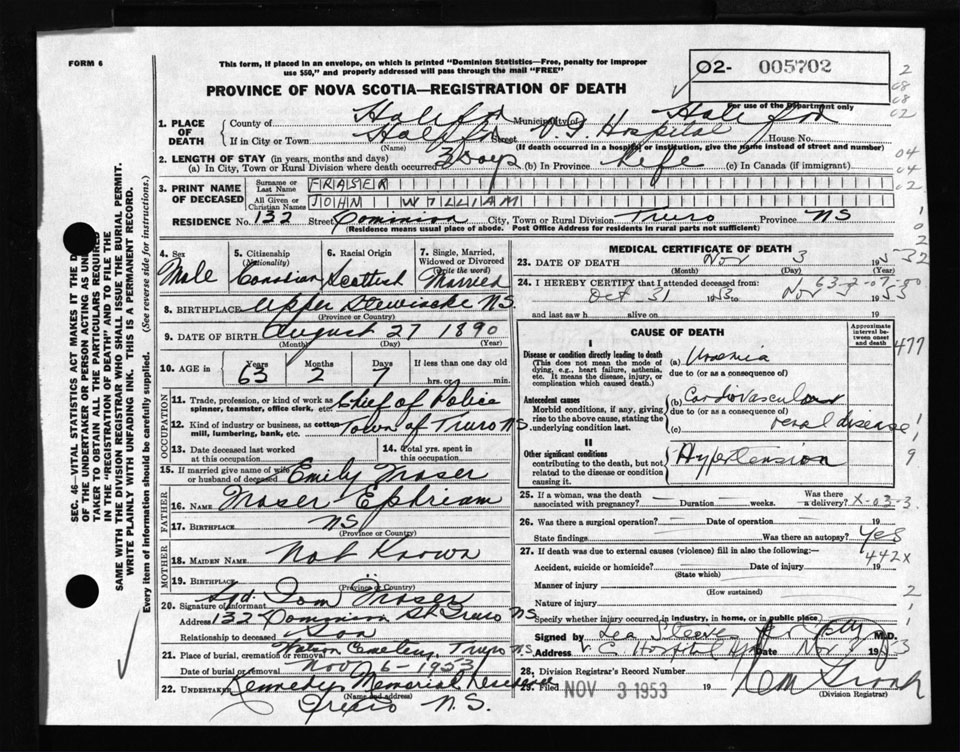 FORM 6
This form, if placed in an envelope, on which is printed "Dominion Statistics—Free, penalty for improper
use $50," and properly addressed will pass through the mail "FREE"
02- 005702
For use of the Department only
PROVINCE OF NOVA SCOTIA—REGISTRATION OF DEATH
1. PLACE OF DEATH
County of Halifax Municipality of Halifax
If in City or Town Halifax Street V. G. Hospital House No.
(Name) (If death occurred in a hospital or institution, give the name instead of street and number)
2. LENGTH OF STAY (in years, months and days)
(a) In City, Town or Rural Division where death occurred 3 Days (b) In Province Life (c) In Canada (if immigrant)
3. PRINT NAME OF DECEASED
Surname or Last Name FRASER
All Given or Christian Names JOHN WILLIAM
RESIDENCE No. 132 Street Dominion City, Town or Rural Division Truro Province NS
(Residence means usual place of abode. Post Office Address for residents in rural parts not sufficient)
4. Sex Male
5. Citizenship (Nationality) Canadian
6. Racial Origin Scottish
7. Single, Married, Widowed or Divorced (Write the word) Married
8. BIRTHPLACE Upper Stewiacke N.S.
(Province or Country)
9. DATE OF BIRTH August 27 1890
(Month) (Day) (Year)
10. AGE in Years 63 Months 2 Days 7 If less than one day old hrs. or min.
OCCUPATION
11. Trade, profession, or kind of work as spinner, teamster, office clerk, etc. Chief of Police
12. Kind of industry or business, as cotton mill, lumbering, bank, etc. Town of Truro NS
13. Date deceased last worked at this occupation
14. Total yrs. spent in this occupation
15. If married give name of wife or husband of deceased Emily Moser
FATHER
16. NAME Moser Ephriam
17. BIRTHPLACE NS
(Province or Country)
MOTHER
18. MAIDEN NAME Not Known
19. BIRTHPLACE
(Province or Country)
20. Signature of informant Sgd. Tom Moser
Address 132 Dominion St. Truro NS
Relationship to deceased Son
21. Place of burial, cremation or removal Watson Cemetery, Truro N.S.
Date of burial or removal Nov 6-1953
22. UNDERTAKER Kennedys Memorial
(Name and address)
Truro N.S.
MEDICAL CERTIFICATE OF DEATH
23. DATE OF DEATH Nov 3 195
(Month) (Day) (Year)
24. I HEREBY CERTIFY that I attended deceased from:
Oct 31 1953 to Nov 3 1953
and last saw h alive on 19
CAUSE OF DEATH
Approximate interval between onset and death
I
Disease or condition directly leading to death
(This does not mean the mode of dying, e.g., heart failure, asthenia, etc. It means the disease, injury, or complication which caused death.)
(a) Uraemia
due to (or as a consequence of)
Antecedent causes
Morbid conditions, if any, giving rise to the above cause, stating the underlying condition last.
(b) Cardiovascular
due to (or as a consequence of)
(c) renal disease
II
Other significant conditions
contributing to the death, but not related to the disease or condition causing it.
Hypertension
477
25. If a woman, was the death associated with pregnancy? Duration weeks. Was there a delivery? X-03-3
26. Was there a surgical operation? Date of operation 19
State findings Was there an autopsy? Yes
27. If death was due to external causes (violence) fill in also the following:— 442X
Accident, suicide or homicide? Date of injury 19
(State which)
Manner of injury
(How sustained)
Nature of injury
Specify whether injury occurred in industry, in home, or in public place
Signed by M.D.
Address Hospital Date Nov
28. Division Registrar's Record Number
29. Filed NOV 3 1953 19
(Division Registrar)
SEC. 46—VITAL STATISTICS ACT MAKES IT THE D
OF THE UNDERTAKER OR PERSON ACTING AS UN
TAKER TO OBTAIN ALL THE PARTICULARS REQUIRED
IN THE "REGISTRATION OF DEATH" AND TO FILE THE
SAME WITH THE DIVISION REGISTRAR WHO SHALL ISSUE THE BURIAL PERMIT.
WRITE PLAINLY WITH UNFADING INK. THIS IS A PERMANENT RECORD.
Every item of information should be carefully supplied. (See reverse side for instructions.)